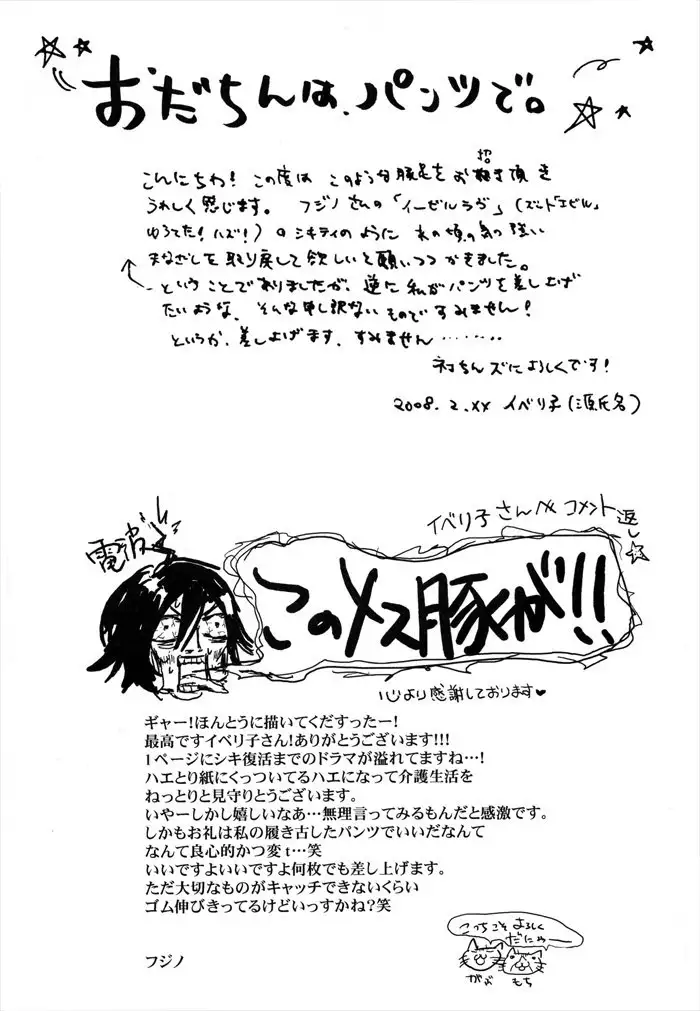 おだちんは、パンツで。
こんにちわ! この度は このような豚足をお招き頂き
うれしく感じます。 フジノさんの「イーゼルラヴ」(
ゆるてた!ハズ!) シキティのように あの頃の気の強い
まなざしを取り戻して欲しいと願いつつかきました。
ということでありましたが、逆に私がパンツを差し上げ
たいような、そんな申し訳ないものですみません!
というか、差し上げます、すみません……‥
ネコちんズによろしくです!
2008.2.xx イベリ子(源氏名)
イベリ子さんへ コメント返し
電波
このメス豚が!!
心より感謝しております♥
ギャー!ほんとうに描いてくだすったー!
最高ですイベリ子さん!ありがとうございます!!!
1ページにシキ復活までのドラマが溢れてますね…!
ハエとり紙にくっついてるハエになって介護生活を
ねっとりと見守りとうございます。
いやーしかし嬉しいなあ…無理言ってみるもんだと感激です。
しかもお礼は私の履き古したパンツでいいだなんて
なんて良心的かつ変t…笑
いいですよいいですよ何枚でも差し上げます。
ただ大切なものがキャッチできないくらい
ゴム伸びきってるけどいっすかね?笑
フジノ
こっちこそよろしく
だにゃー
がぶ
もち